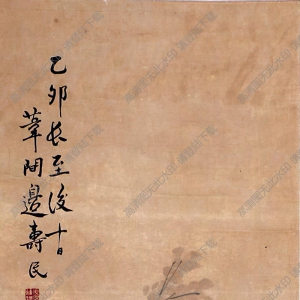 乙卯長至後十日
葦間邊壽民